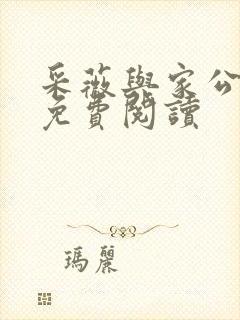 采薇與家公
免費閱讀
瑪麗